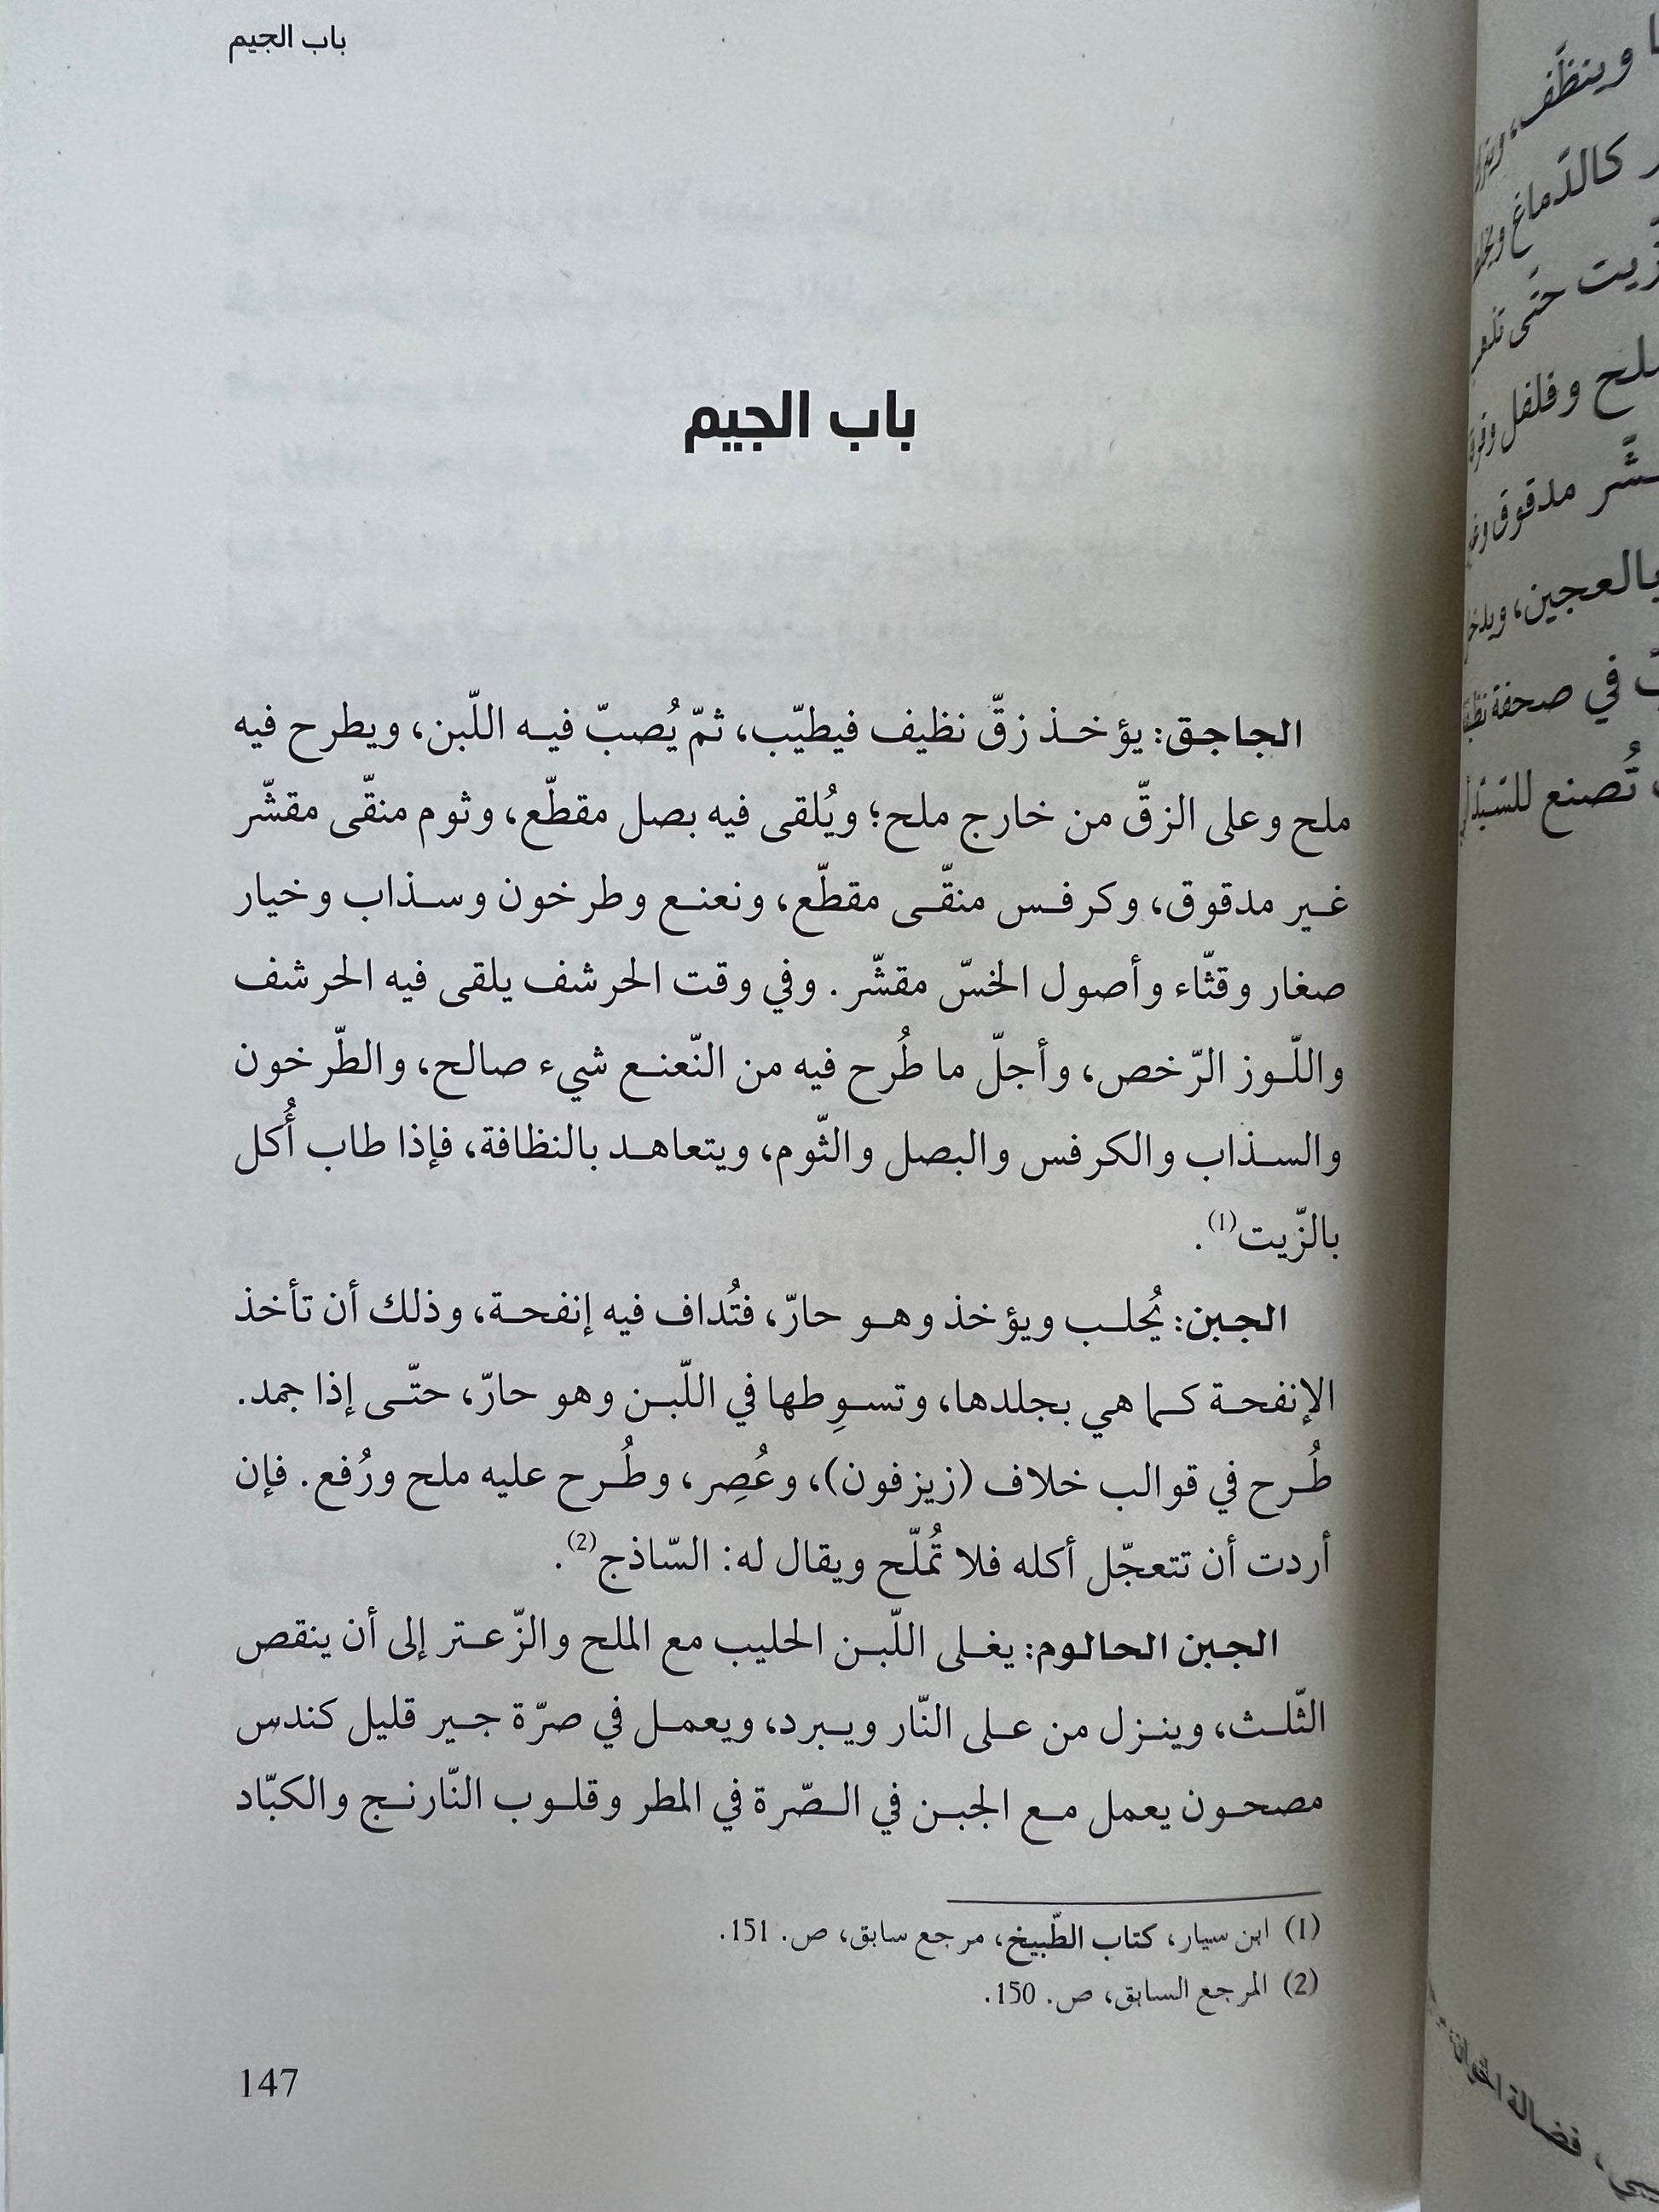 باب الجيم
باب الجيم
الجاجق: يؤخذ زقّ نظيف فيطيّب، ثمّ يُصبّ فيه اللّبن، ويطرح فيه
ملح وعلى الزقّ من خارج ملح؛ ويُلقى فيه بصل مقطّع، وثوم منقّى مقشّر
غير مدقوق، وكرفس منقّى مقطّع، ونعنع وطرخون وسذاب وخيار
صغار وقثّاء وأصول الخسّ مقشّر. وفي وقت الحرشف يلقى فيه الحرشف
واللّوز الرّخص، وأجلّ ما طُرح فيه من النّعنع شيء صالح، والطّرخون
والسذاب والكرفس والبصل والثّوم، ويتعاهد بالنظافة، فإذا طاب أُكل
بالزّيت(1).
الجبن: يُحلب ويؤخذ وهو حارّ، فتُداف فيه إنفحة، وذلك أن تأخذ
الإنفحة كما هي بجلدها، وتسوِطها في اللّبن وهو حارّ، حتّى إذا جمد.
طُرح في قوالب خلاف (زيزفون)، وعُصِر، وطُرح عليه ملح ورُفع. فإن
أردت أن تتعجّل أكله فلا تُملّح ويقال له: السّاذج(2).
الجبن الحالوم: يغلى اللّبن الحليب مع الملح والزّعتر إلى أن ينقص
الثّلث، وينزل من على النّار ويبرد، ويعمل في صرّة جير قليل كندس
مصحون يعمل مع الجبن في الصّرة في المطر وقلوب النّارنج والكبّاد
(1) ابن سيار، كتاب الطّبيخ، مرجع سابق، ص. 151.
(2) المرجع السابق، ص. 150.
147
وينظّف،
كالدّماغ
زّيت حتّى
ملح وفلفل
مدقوق
بالعجين،
في صحفة
تُصنع
فضالة